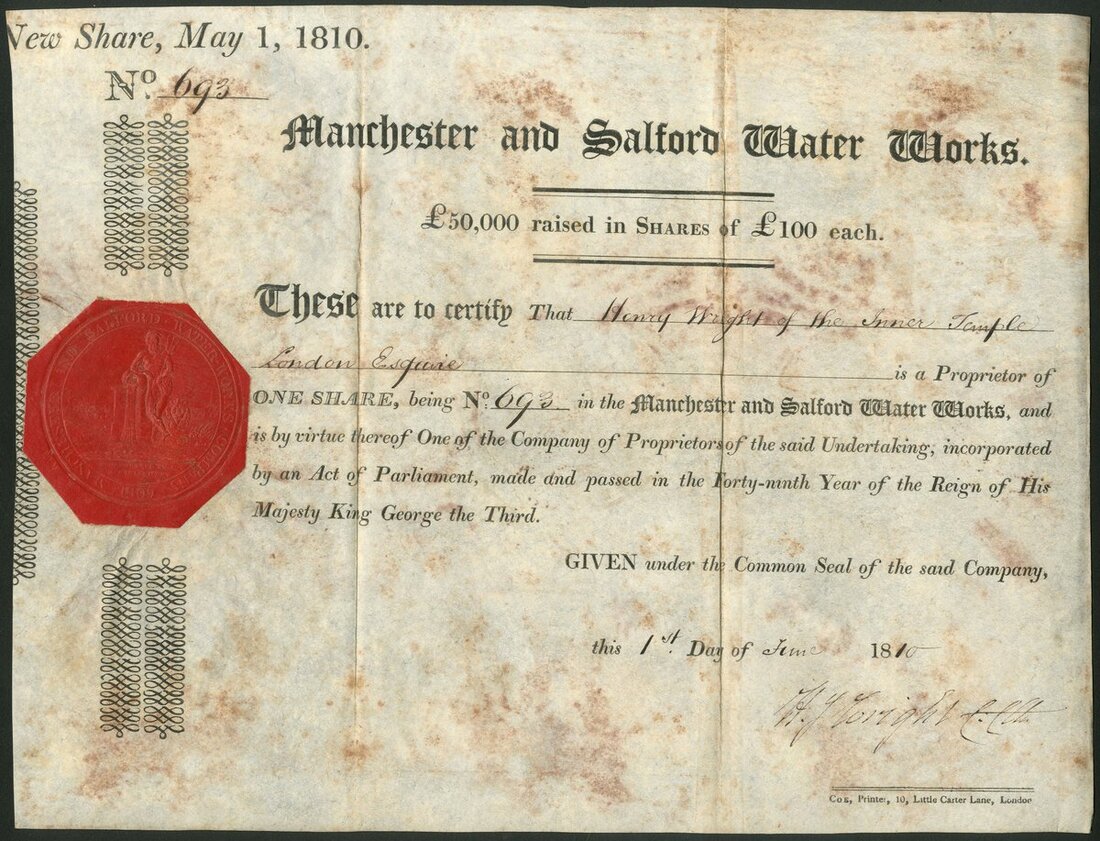 New Share, May 1, 1810.
No. 693
Manchester and Salford Water Works.
£50,000 raised in SHARES of £100 each.
These are to certify That Henry Wright of the Inner Temple
London Esquire is a Proprietor of
ONE SHARE, being No. 693 in the Manchester and Salford Water Works, and
is by virtue thereof One of the Company of Proprietors of the said Undertaking, incorporated
by an Act of Parliament, made and passed in the Forty-ninth Year of the Reign of His
Majesty King George the Third.
GIVEN under the Common Seal of the said Company,
this 1st. Day of June 1810
Wright
Cox, Printer, 10, Little Carter Lane, London
AND SALFORD WATER WORKS
1809